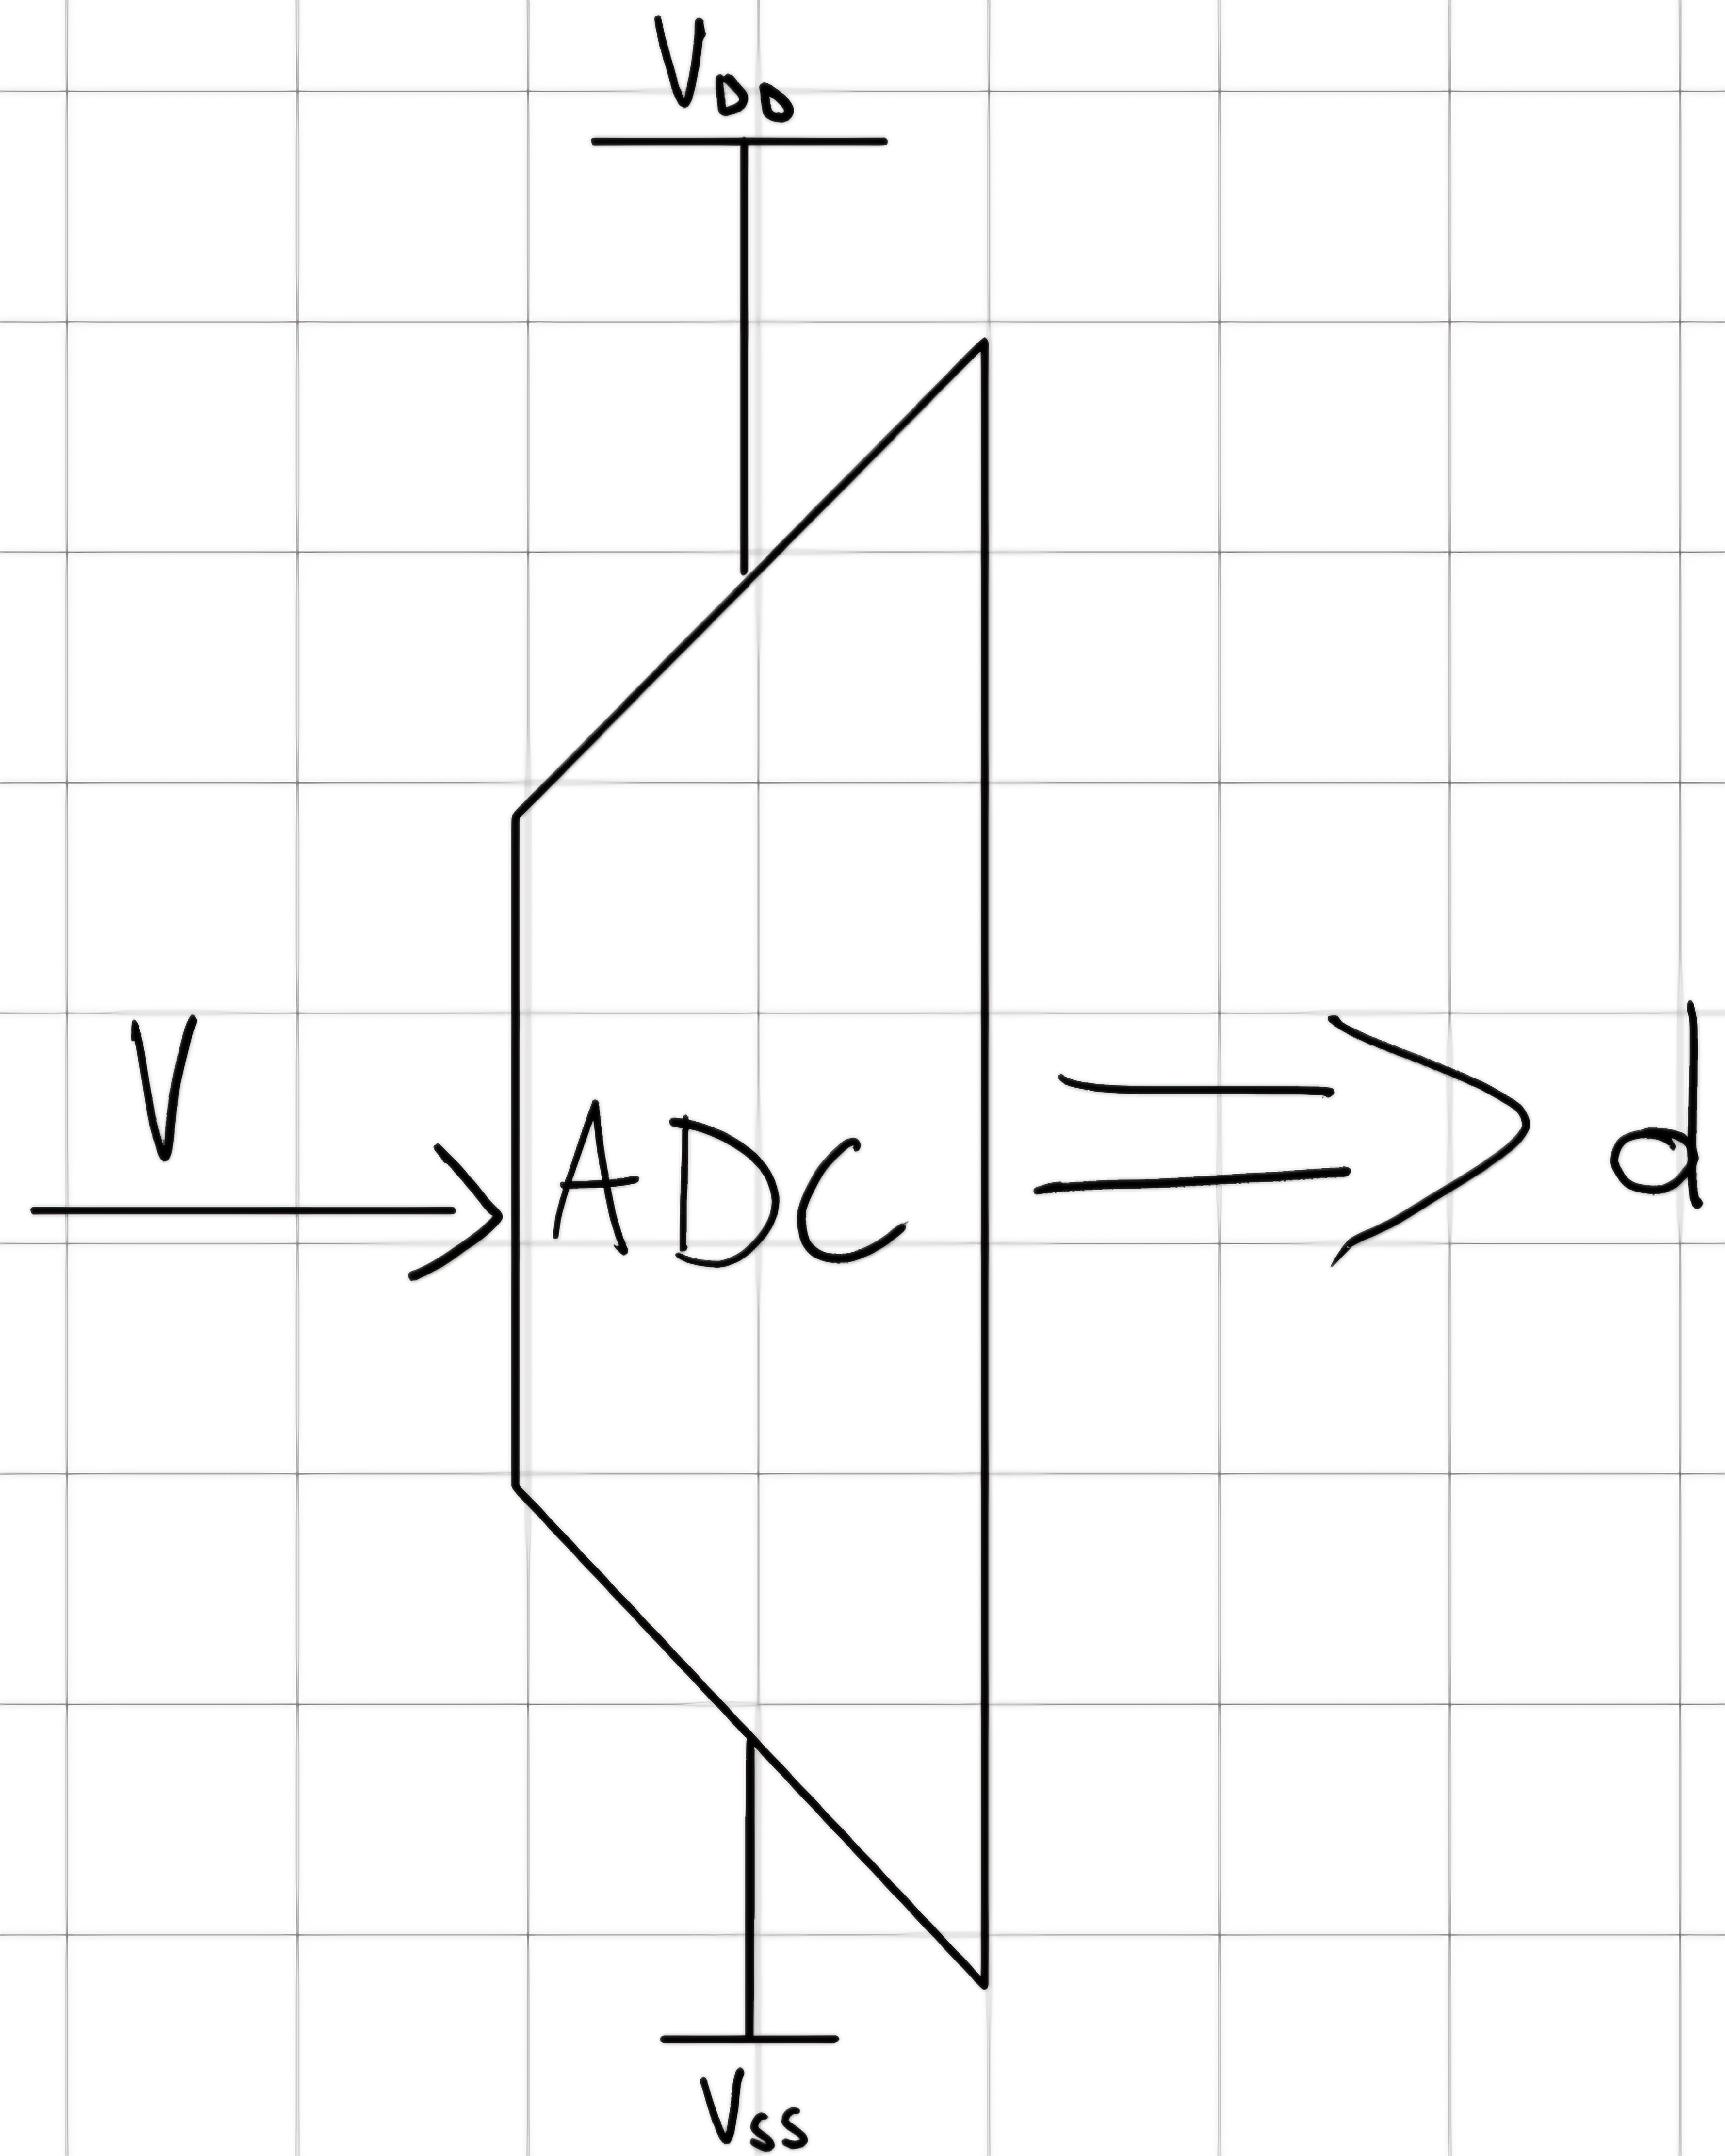 VDD
V
ADC
d
VSS